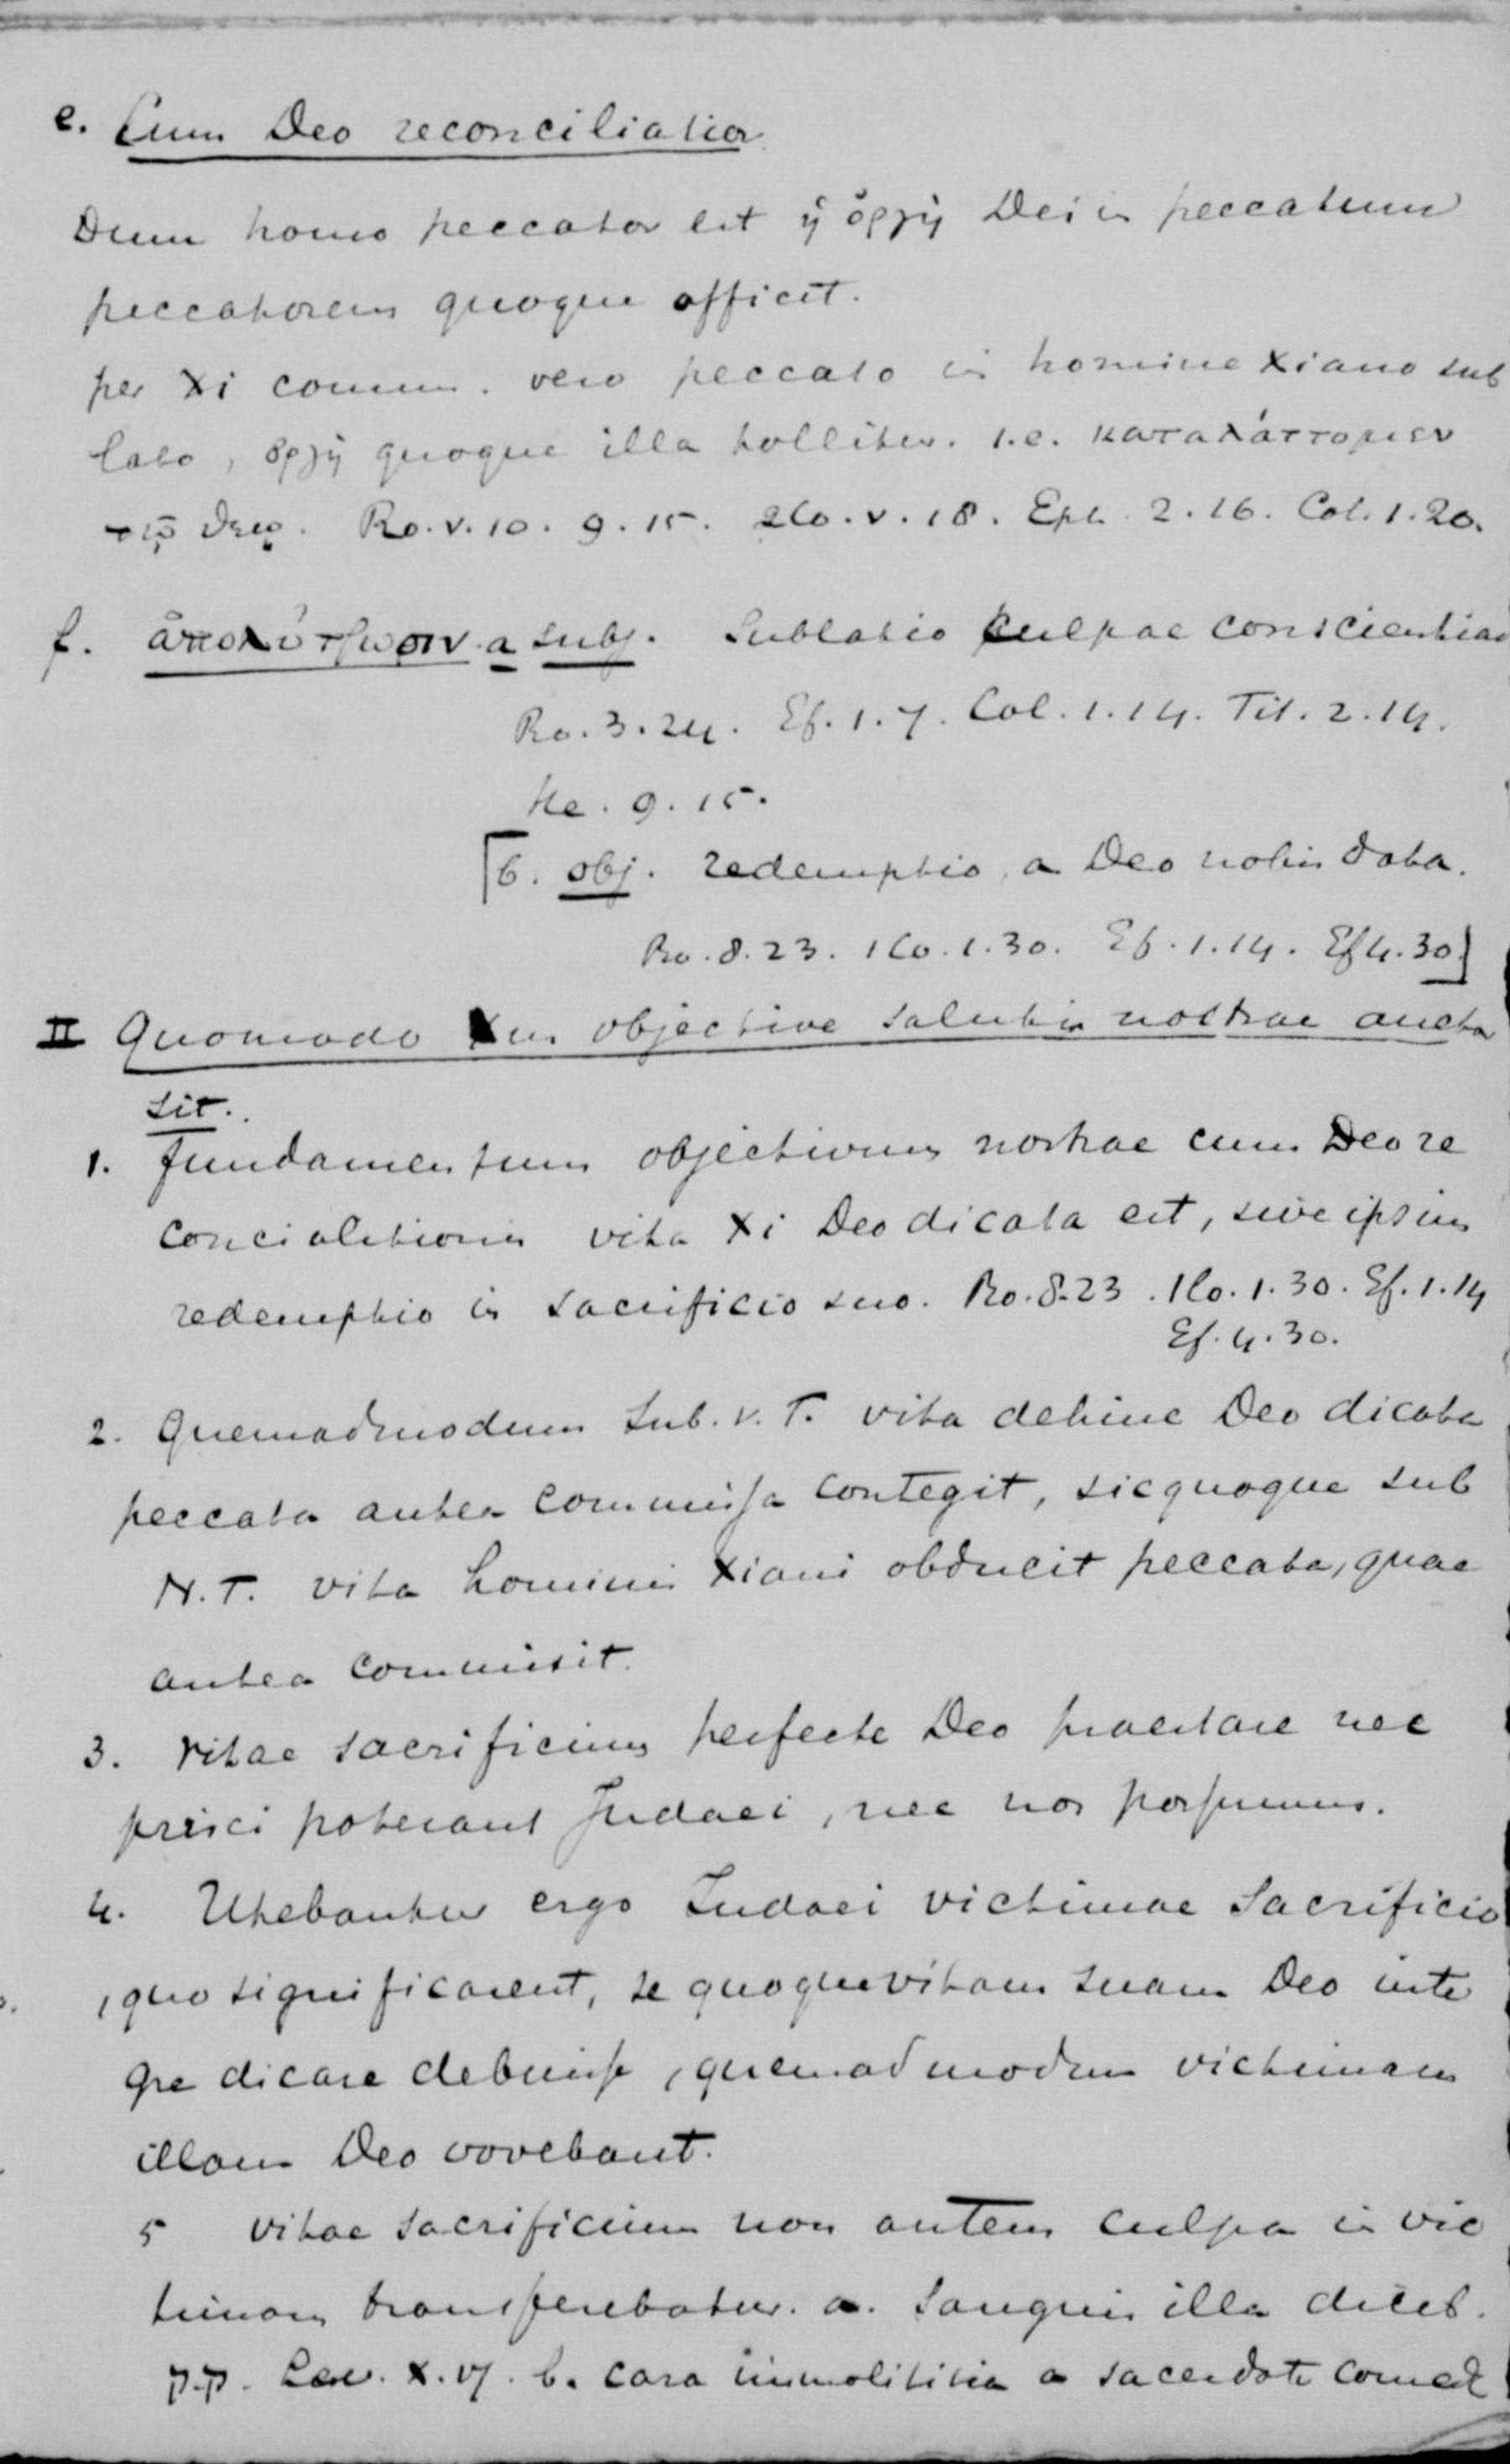 e. Cum Deo reconciliatio
Dum homo peccator est ἡ ὀργὴ Dei in peccatum
peccatorem quoque afficit.
per Xi comm. vero peccato in homine Xiano sub
lato, ὀργὴ quoque illa tollitur. i.e. καταλάττομεν
τῷ θεῷ. Ro. v. 10. 9. 15. 2Co. v. 18. Eph. 2.16. Col. 1.20.
f. ἀπολύτρωσιν. a subj. Sublatio culpae conscientiae
Ro. 3.24. Ef. 1.7. Col. 1.14. Tit. 2.14.
He. 9.15.
[b. obj. redemptio, a Deo nobis data.
Ro. 8.23. 1Co. 1.30. Ef. 1.14. Ef 4.30]
II Quomodo Xus objective salutis nostrae auctor
sit.
1. fundamentum objectivum nostrae cum Deo re
concialitionis vita Xi Deo dicata est, sive ipsius
redemptio in sacrificio suo. Ro. 8.23. 1Co. 1.30. Ef. 1.14
Ef. 4.30.
2. Quemadmodum sub. v. T. vita dehinc Deo dicata
peccata antea commissa contegit, sic quoque sub
N.T. vita hominis Xiani obducit peccata, quae
antea commisit.
3. Vitae sacrificium perfecte Deo praestare nec
prisci poterant Judaei, nec nos possumus.
4. Utebantur ergo Judaei victimae sacrificio
, quo significarent, se quoque vitam suam Deo inte
gre dicare debuisse, quemadmodum victimam
illam Deo vovebant.
5 vitae sacrificium non autem culpa in vic
timam transferebatur. a. Sanguis illa dicit.
Lev. X. 17. b. caro immolititia a sacerdote comed